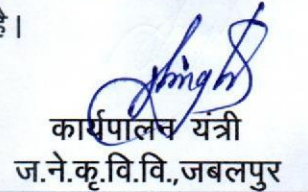 है।
Singh
कार्यपालन यंत्री
ज.ने.कृ.वि.वि.,जबलपुर